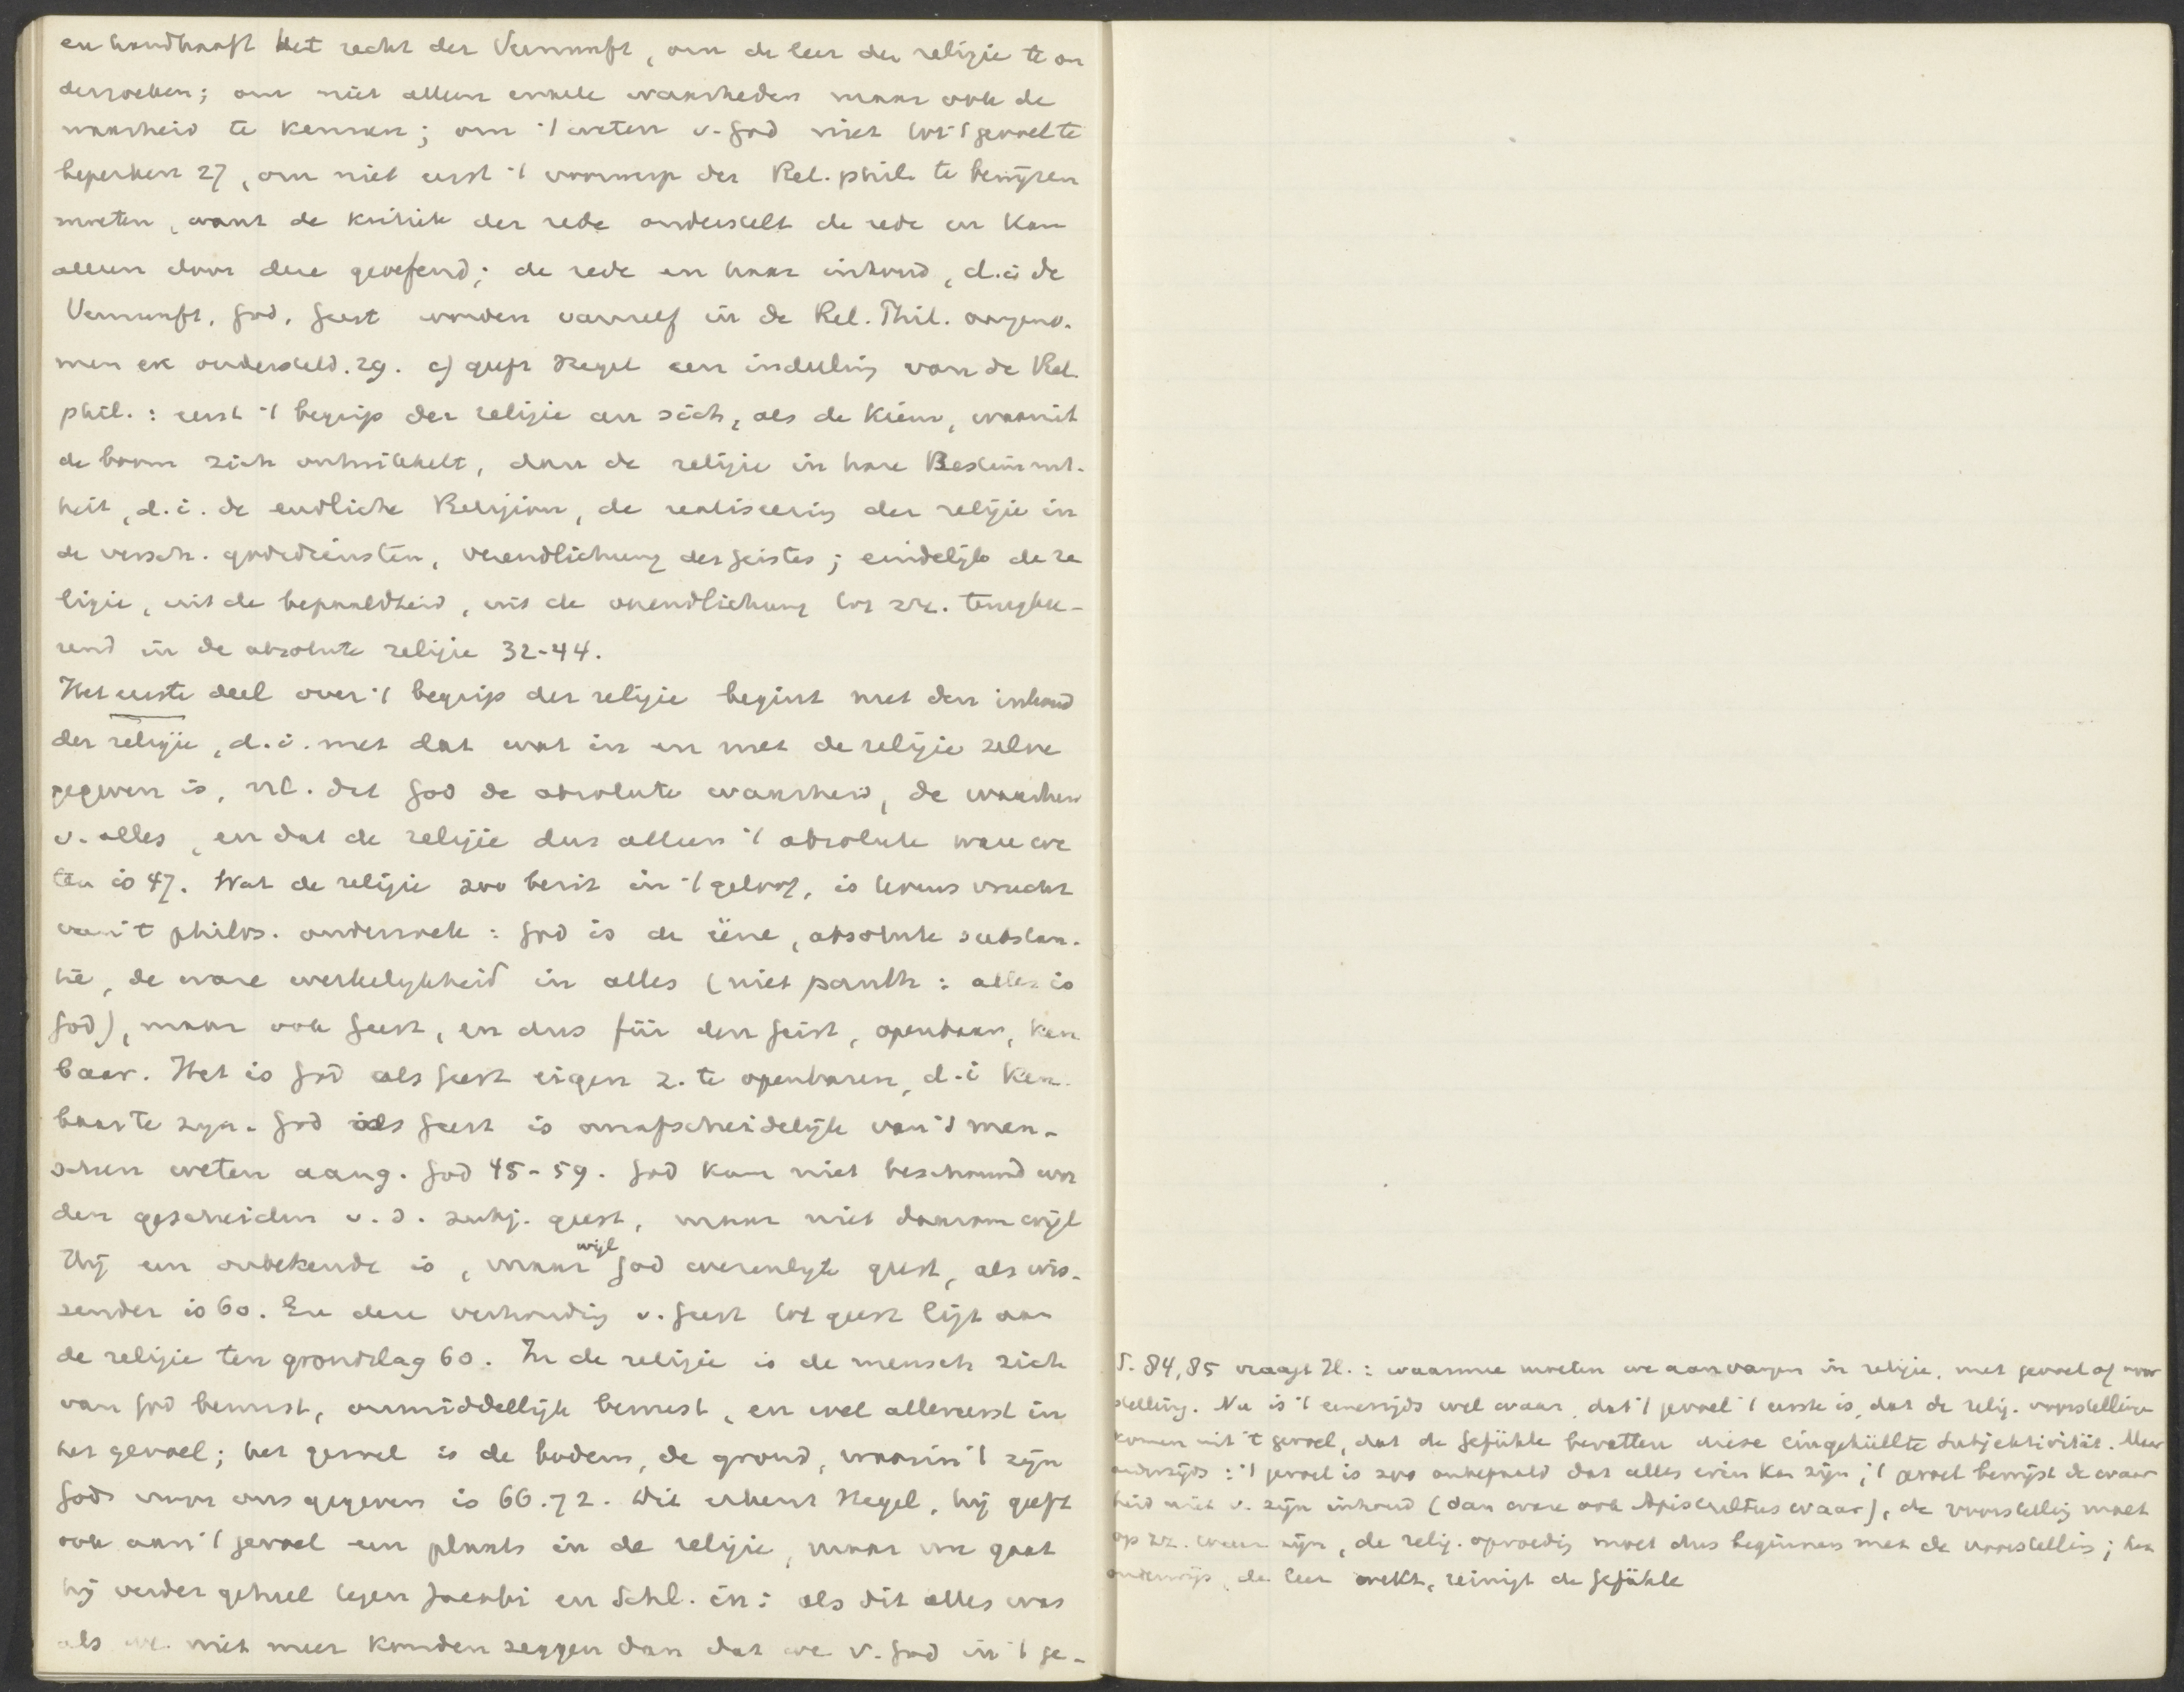 en handhaaft het recht der Vernunft, om de leer der religie te on
derzoeken; om niet alleen enkele waarheden maar ook de
waarheid te kennen; om 't weten v. God niet tot 't gevoel te
beperken 27, om niet eerst 't voorwerp der Rel. phil. te bewijzen
moeten, want de kritiek der rede onderstelt de rede en kan
alleen door deze geoefend; de rede en haar inhoud, d.i de
Vernunft, God, Geest worden vanself in de Rel. Phil. aangeno-
men en ondersteld. 29. c) geeft Hegel een indeeling van de Rel.
phil.: eerst 't begrip der religie an sich, als de kiem, waaruit
de boom zich ontwikkelt, dan de religie in hare Bestimmt-
heit, d.i. de endliche Religion, de realiseering der religie in
de versch. godsdiensten, verendlichung des Geistes; eindelijk de re
ligie, uit de bepaaldheid, uit de verendlichung tot zz. terugkee-
rend in de absolute religie 32-44.
Het eerste deel over 't begrip der religie begint met den inhoud
der religie, d.i. met dat wat in en met de religie zelve
gegeven is, nl. dat God de absolute waarheid, de waarheid
v. alles, en dat de religie dus alleen 't absolute ware we
ten is 47. Wat de religie zoo bezit in 't geloof, is tevens vrucht
van 't philos. onderzoek: God is de ééne, absolute substan-
tie, de ware werkelijkheid in alles (niet panth: alles is
God), maar ook Geest, en dus für den Geist, openbaar, ken
baar. Het is God als Geest eigen z. te openbaren, d.i ken-
baar te zijn. God als Geest is onafscheidelijk van 't men-
schen weten aang. God 45-59. God kan niet beschouwd wor
den gescheiden v. d. subj. geest, maar niet daarom wijl
Hij een onbekende is, maar wijl God wezenlijk geest, als wis-
sender is 60. En deze verhouding v. Geest tot geest ligt aan
de religie ten grondslag 60. In de religie is de mensch zich
van God bewust, onmiddellijk bewust, en wel allereerst in
het gevoel; het gevoel is de bodem, de grond, waarin 't zijn
Gods voor ons gegeven is 66.72. Dit erkent Hegel, hij geeft
ook aan 't gevoel een plaats in de religie, maar nu gaat
hij verder geheel tegen Jacobi en Schl. in: als dit alles was
als we niet meer konden zeggen dan dat we v. God in 't ge-
S. 84,85 vraagt H.: waarmee moeten we aanvangen in religie, met gevoel of voor
stelling. Nu is 't eenerzijds wel waar, dat 't gevoel 't eerste is, dat de relig. voorstellingen
komen uit 't gevoel, dat de Gefühle bevatten diese eingehüllte Subjektivität. Maar
anderzijds: 't gevoel is zoo onbepaald dat alles erin kan zijn; 't gevoel bewijst de waar
heid niet v. zijn inhoud (dan ware ook Apiscultus waar), de voorstelling moet
op zz. waar zijn, de relig. opvoeding moet dus beginnen met de voorstelling; het
onderwijs, de leer wekt, reinigt de Gefühle